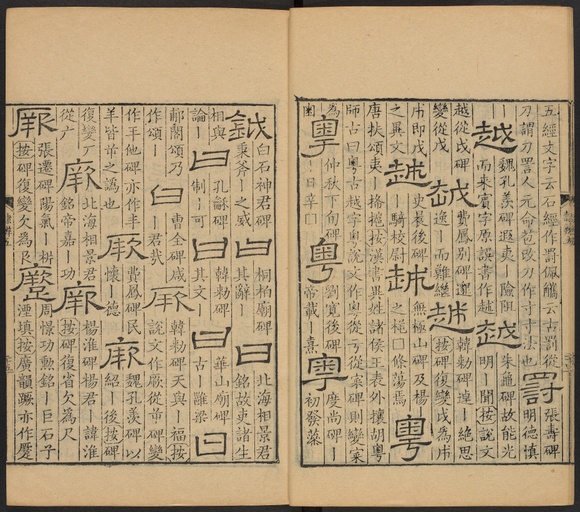 五經文字云石經作罰佩觿云古罰從
刀謂刀詈人元命苞改刀作寸寸法也
罰
張壽碑
明德慎
越
魏孔羨碑遐夷一險阻
而來賓字原誤書作越
越
朱龜碑故能光
明一聞按說文
越從戉碑
變從戊
越
費鳳別碑迎
逸一而難繼
越
韓勑碑逴一絶思
按碑復變戊為朮
朮即戊
之異文
越
史晨後碑
一騎校尉
越
無極山碑及楊
之
條蕩爲
唐扶頌夷一
按漢書異姓諸侯王表外攘胡粵
師古曰粵古越字粵說文作粵從亏從寀碑則變寀
粵
為
粵
仲秋下旬碑
一日辛
粵
劉寬後碑
帝載一熹
粵
度尚碑一
初發蔡
鉞
白石神君碑
秉斧一之威
曰
桐柏廟碑
其辭一
曰
北海相景君
銘故吏諸生
相與
論一
曰
孔龢碑
制一可
曰
韓勑碑
其文一
曰
華山廟碑
古一雍梁
曰
郙閣頌乃
作頌一
曰
曹全碑咸
一君哉
厥
韓勑碑天與一福按
說文作厥從欮碑變
作手他碑亦作丰
羊皆欮之譌也
厥
費鳳碑民
懷一德
厥
魏孔羨碑以
紹一後按碑
復變厂
從广
厥
北海相景君
銘帝嘉一功
厥
楊淮碑楊君一諱淮
按碑復省欠為尺
厥
張遷碑陽氣一栟
按碑復變欠為𠬝
蹷
周憬功勲銘一巨石子
湮填按廣韻蹶亦作蹷